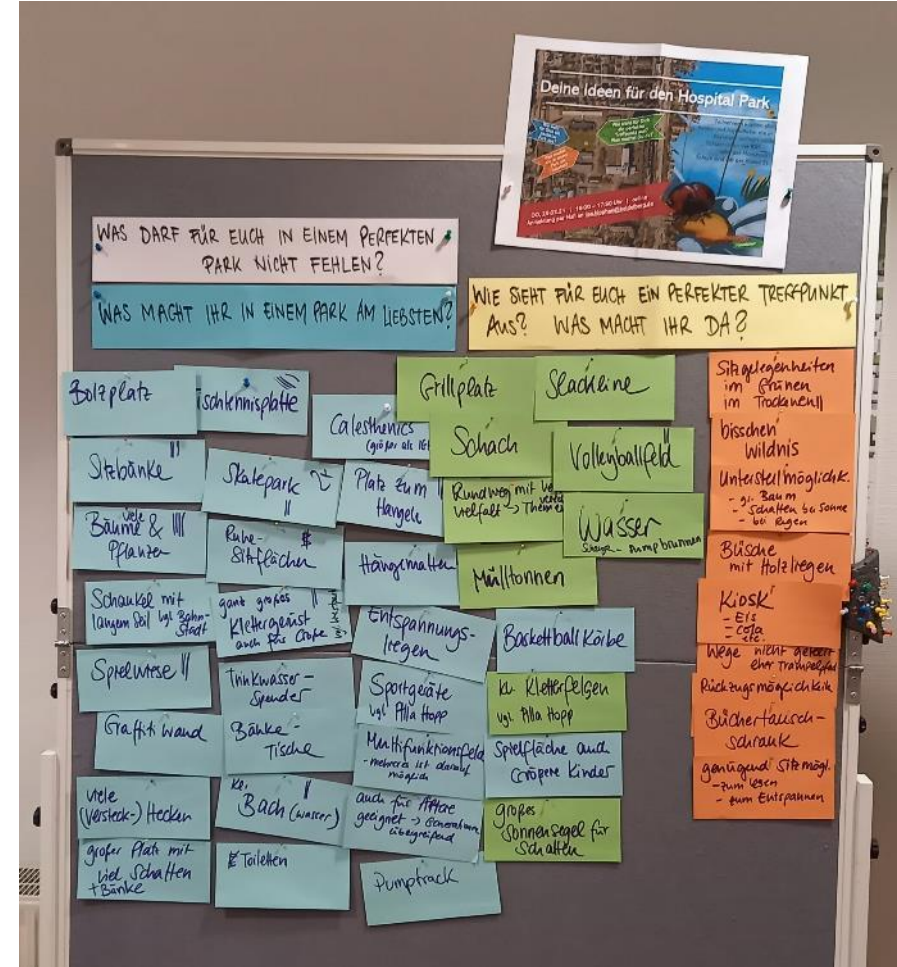 Deine Ideen für den Hospital Park
WAS DARF FÜR EUCH IN EINEM PERFEKTEN
PARK NICHT FEHLEN?
WAS MACHT IHR IN EINEM PARK AM LIEBSTEN?
WIE SIEHT FÜR EUCH EIN PERFEKTER TREFFPUNKT
AUS? WAS MACHT IHR DA?
Bolzplatz
Sitzbänke
viele
Bäume &
Pflanzen
Schaukel mit
langem Seil vgl. Bahn-
Stadt
Spielwiese
Graffiti Wand
viele
(Versteck-) Hecken
großer Platz mit
viel Schatten
+ Bänke
ischtennisplatte
Skatepark
Ruhe-
Sitzflächen
ganz großes
Klettergerüst
auch für Große
Trinkwasser-
spender
Bänke-
Tische
kl.
Bach (wasser)
Toiletten
Calesthenics
(größer als
Platz zum
Hangeln
Hängematten
Entspannungs-
liegen
Sportgeräte
vgl. Alla Hopp
Multifunktionsfeld
- mehreres ist darauf
möglich
auch für Ältere
geeignet → Generationen
übergreifend
Pumptrack
Grillplatz
Schach
Rundweg mit
vielfalt → Themen
Mülltonnen
Basketball Körbe
kl. Kletterfelsen
vgl. Alla Hopp
Spielfläche auch
größere Kinder
großes
Sonnensegel für
Schatten
Slackline
Volleyballfeld
Wasser
Pumpbrunnen
Sitzgelegenheiten
im Grünen
im Trockenen
bisschen
Wildnis
Unterstellmöglichk.
- gr. Baum
- Schatten bei Sonne
- bei Regen
Büsche
mit Holzliegen
Kiosk
- Eis
- Cola
- etc.
Wege nicht geteert
eher Trampelpfad
Rückzugsmöglichkeit
Büchertausch-
schrank
genügend Sitzmögl.
- zum Lesen
- zum Entspannen